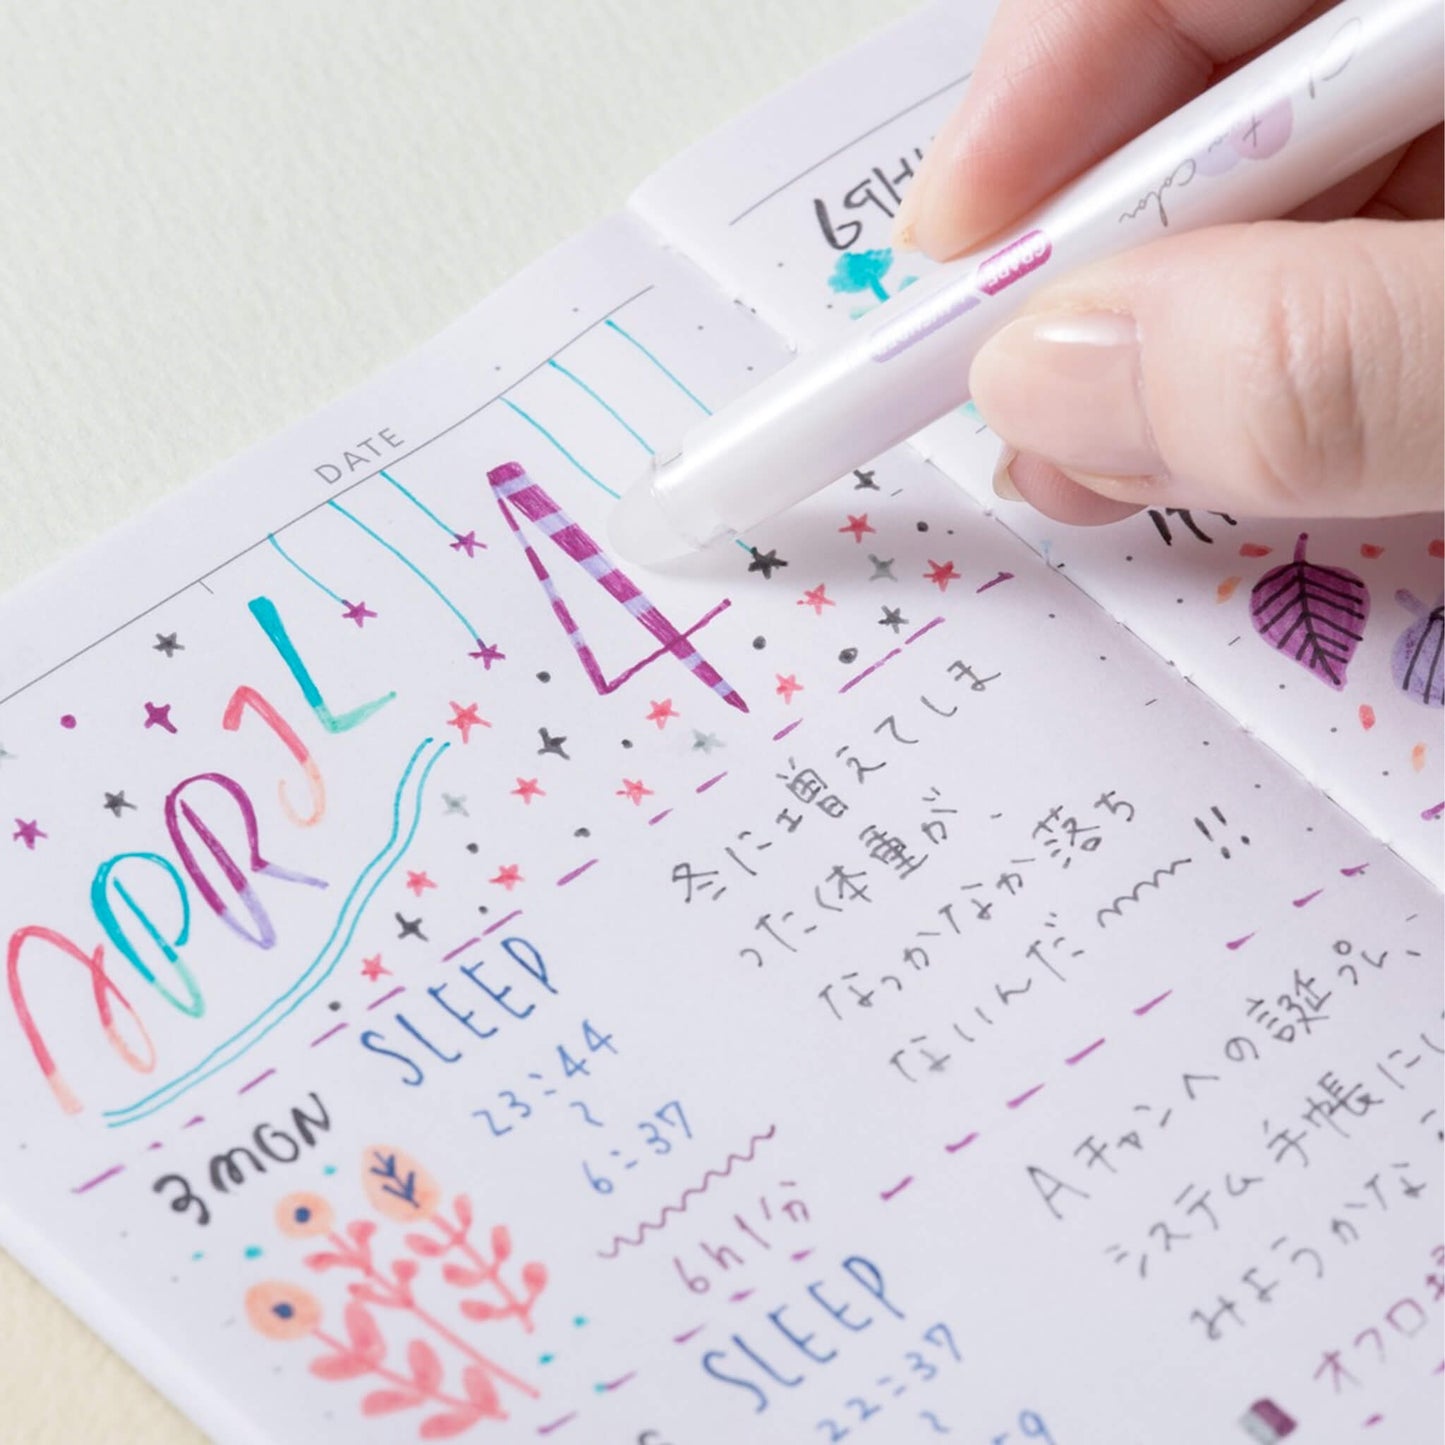 DATE
APRIL
4
3 MON
SLEEP
23:44
〜
6:37
6h1分
SLEEP
22:37
〜
冬に増えてしま
った体重が、
なっかなか落ち
ないんだ〜〜!!
Aチャンへの誕プレ、
システム手帳にし
みようかな
オフロ
Color
GRAPE